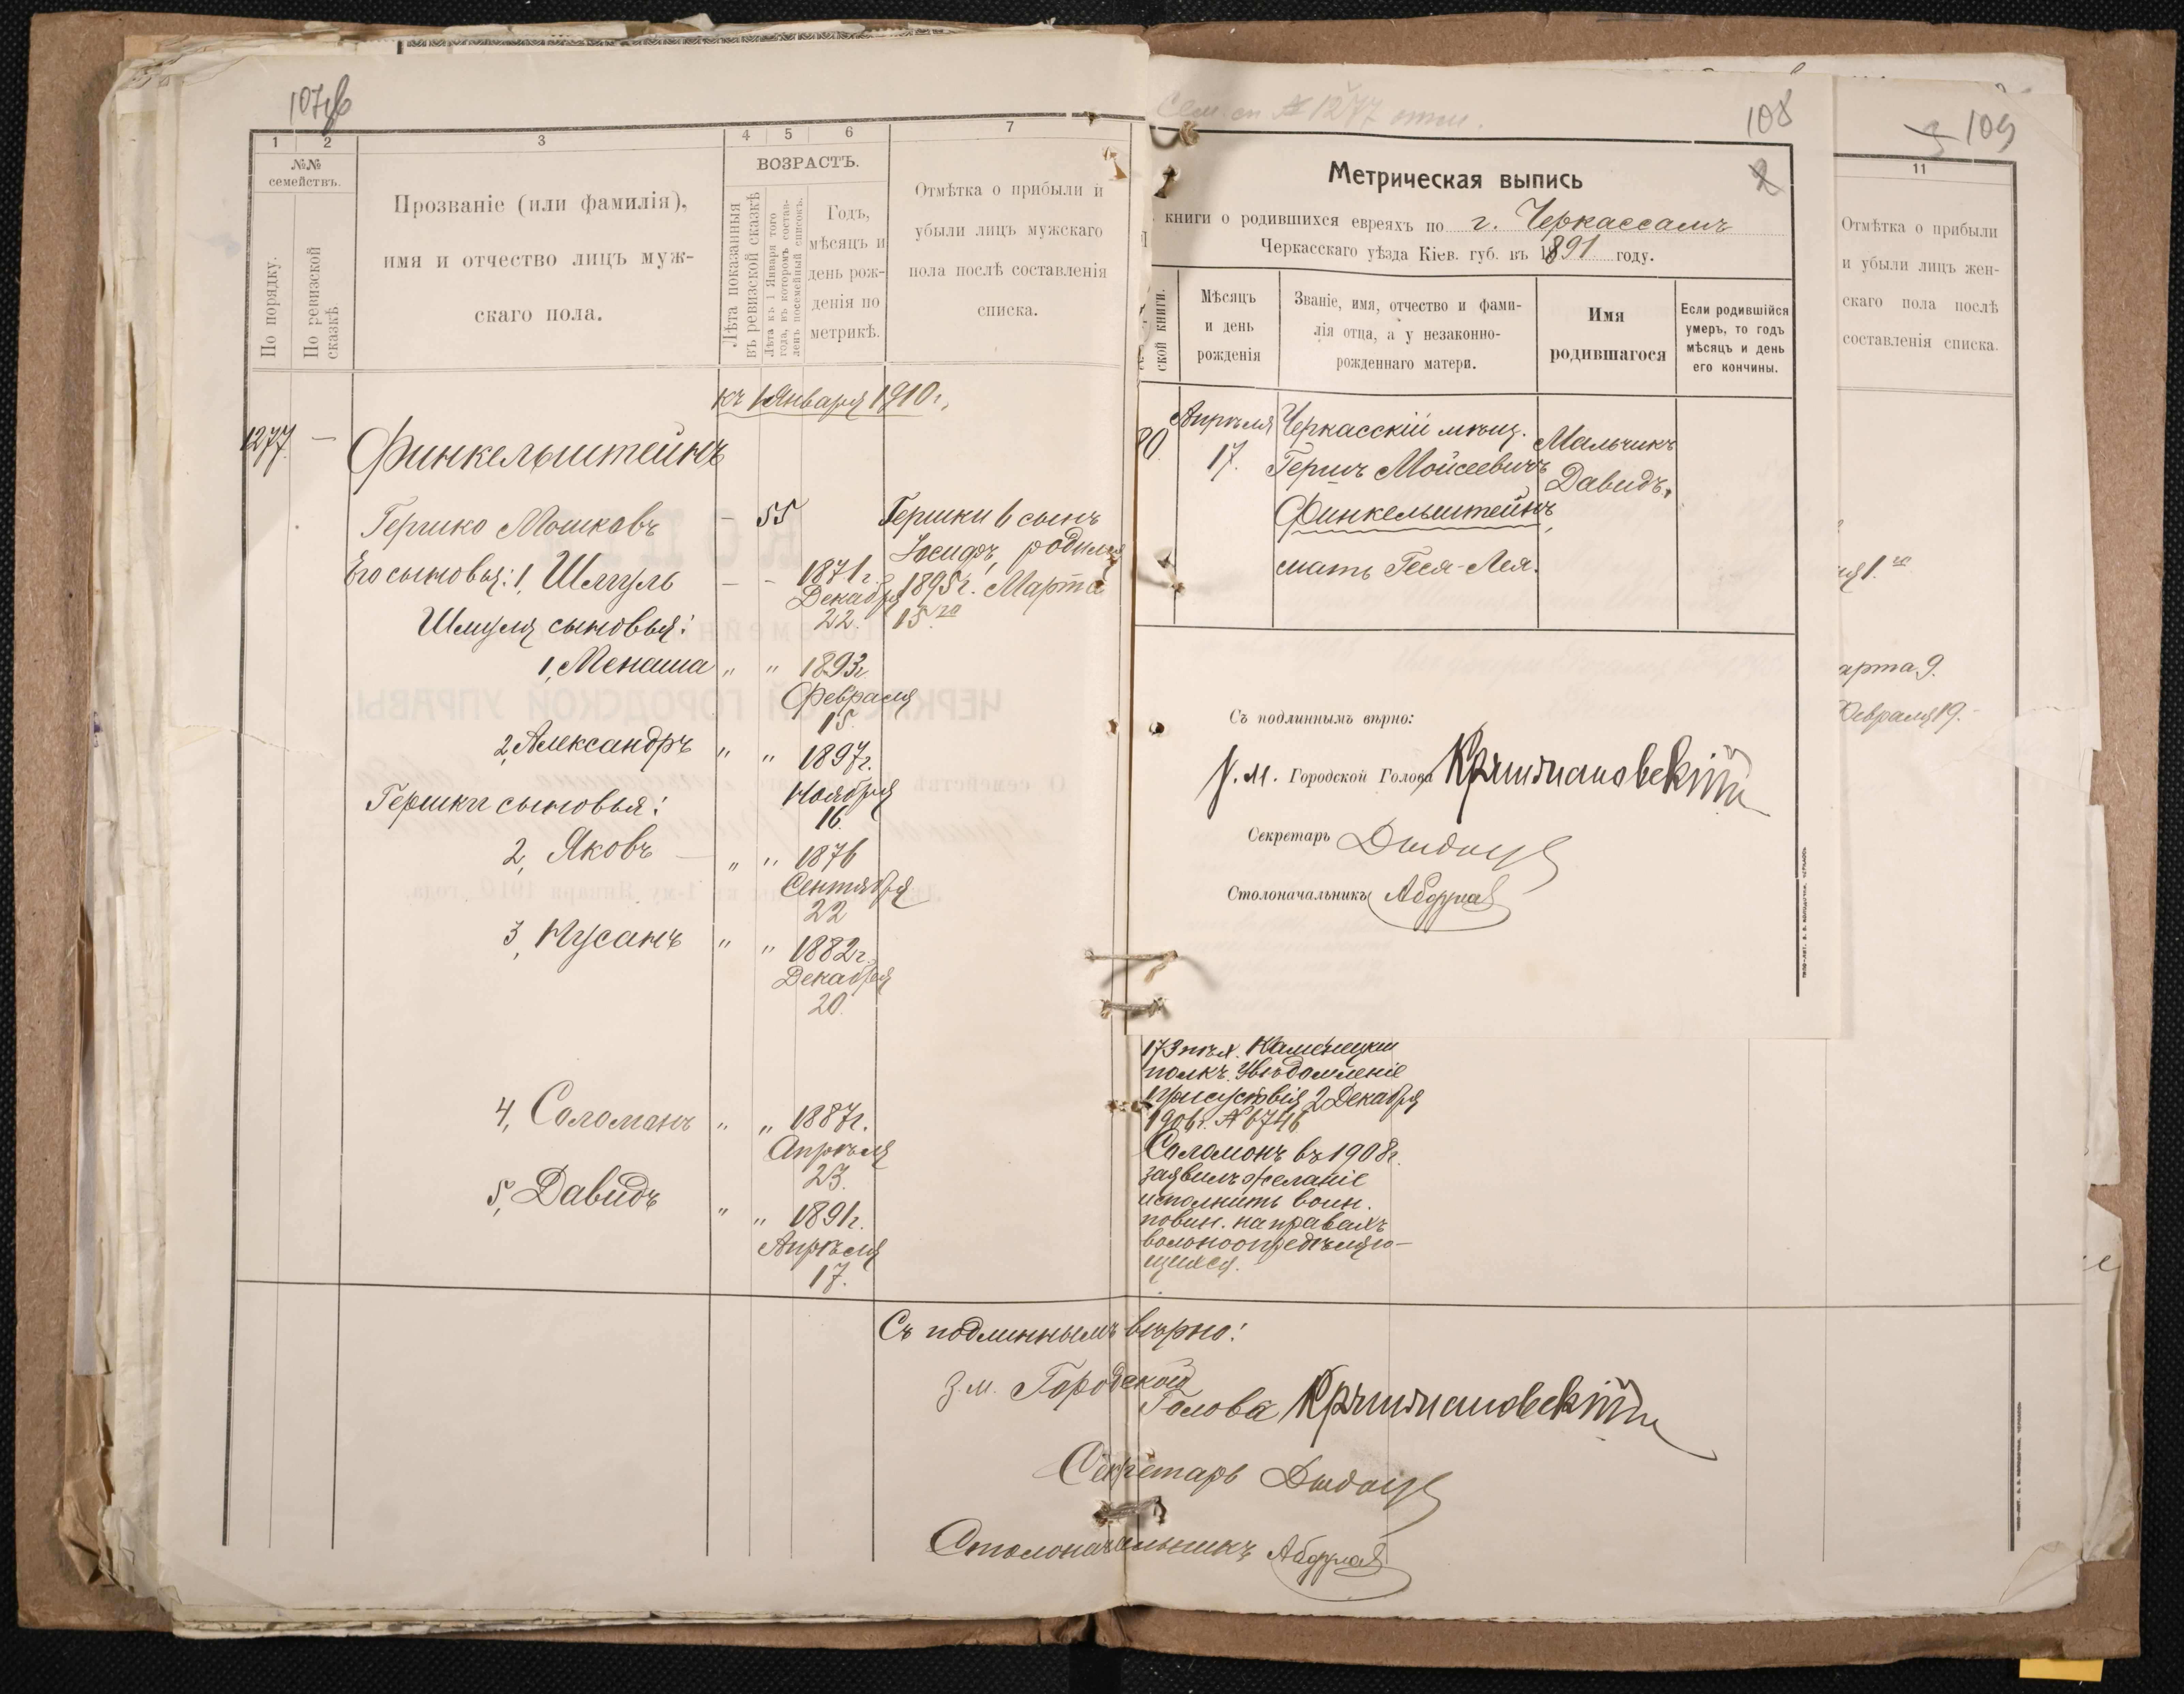 107об
1 2 3 4 5 6 7
№№ семействъ.
По порядку.
По ревизской сказкѣ.
Прозваніе (или фамилія),
имя и отчество лицъ муж-
скаго пола.
ВОЗРАСТЪ.
Лѣта показанныя въ ревизской сказкѣ
Лѣта къ 1 Января того года, въ которомъ составленъ посемейный списокъ.
Годъ,
мѣсяцъ и
день рож-
денія по
метрикѣ.
Отмѣтка о прибыли и
убыли лицъ мужскаго
пола послѣ составленія
списка.
къ 1 Января 1910 г.,
1277. — Финкельштейнъ
Гершко Мошковъ — 55
Его сыновья: 1, Шмуль — - 1871 г.
Декабря
22.
Шмуля сыновья:
1, Менаша „ „ 1893 г
Февраля
15.
2, Александръ „ „ 1897 г.
Ноября
16.
Гершки сыновья:
2, Яковъ — „ „ 1876
Сентября
22
3, Нусанъ „ „ 1882 г.
Декабря
20.
4, Соломонъ „ „ 1887 г.
Апрѣля
23.
5, Давидъ „ „ 1891 г.
Апрѣля
17.
Гершки 6 сынъ
Іосифъ, родился
1895 г. Марта
15го
Сем. сп № 1277
108
2
Метрическая выпись
книги о родившихся евреяхъ по г. Черкассамъ
Черкасскаго уѣзда Кіев. губ. въ 1891 году.
ской книги.
Мѣсяцъ
и день
рожденія
Званіе, имя, отчество и фами-
лія отца, а у незаконно-
рожденнаго матери.
Имя
родившагося
Если родившійся
умеръ, то годъ
мѣсяцъ и день
его кончины.
80.
Апрѣля
17.
Черкасскій мѣщ.
Гершъ Мойсеевичъ
Финкельштейнъ,
мать Геся-Лея.
Мальчикъ
Давидъ.
Съ подлиннымъ вѣрно:
Городской Голова
Секретарь
Столоначальникъ
109
11
Отмѣтка о прибыли
и убыли лицъ жен-
скаго пола послѣ
составленія списка.
арта 9.
Февраля 19.
173 пѣх. Каменецкій
полкъ. Увѣдомленіе
Присутствія 2 Декабря
1906 г. № 6746
Соломонъ въ 1908 г.
заявилъ желаніе
исполнить воин.
повин. на правахъ
вольноопредѣляю-
щихся.
Съ подлиннымъ вѣрно:
З. м. Городской
Голова
Секретарь
Столоначальникъ